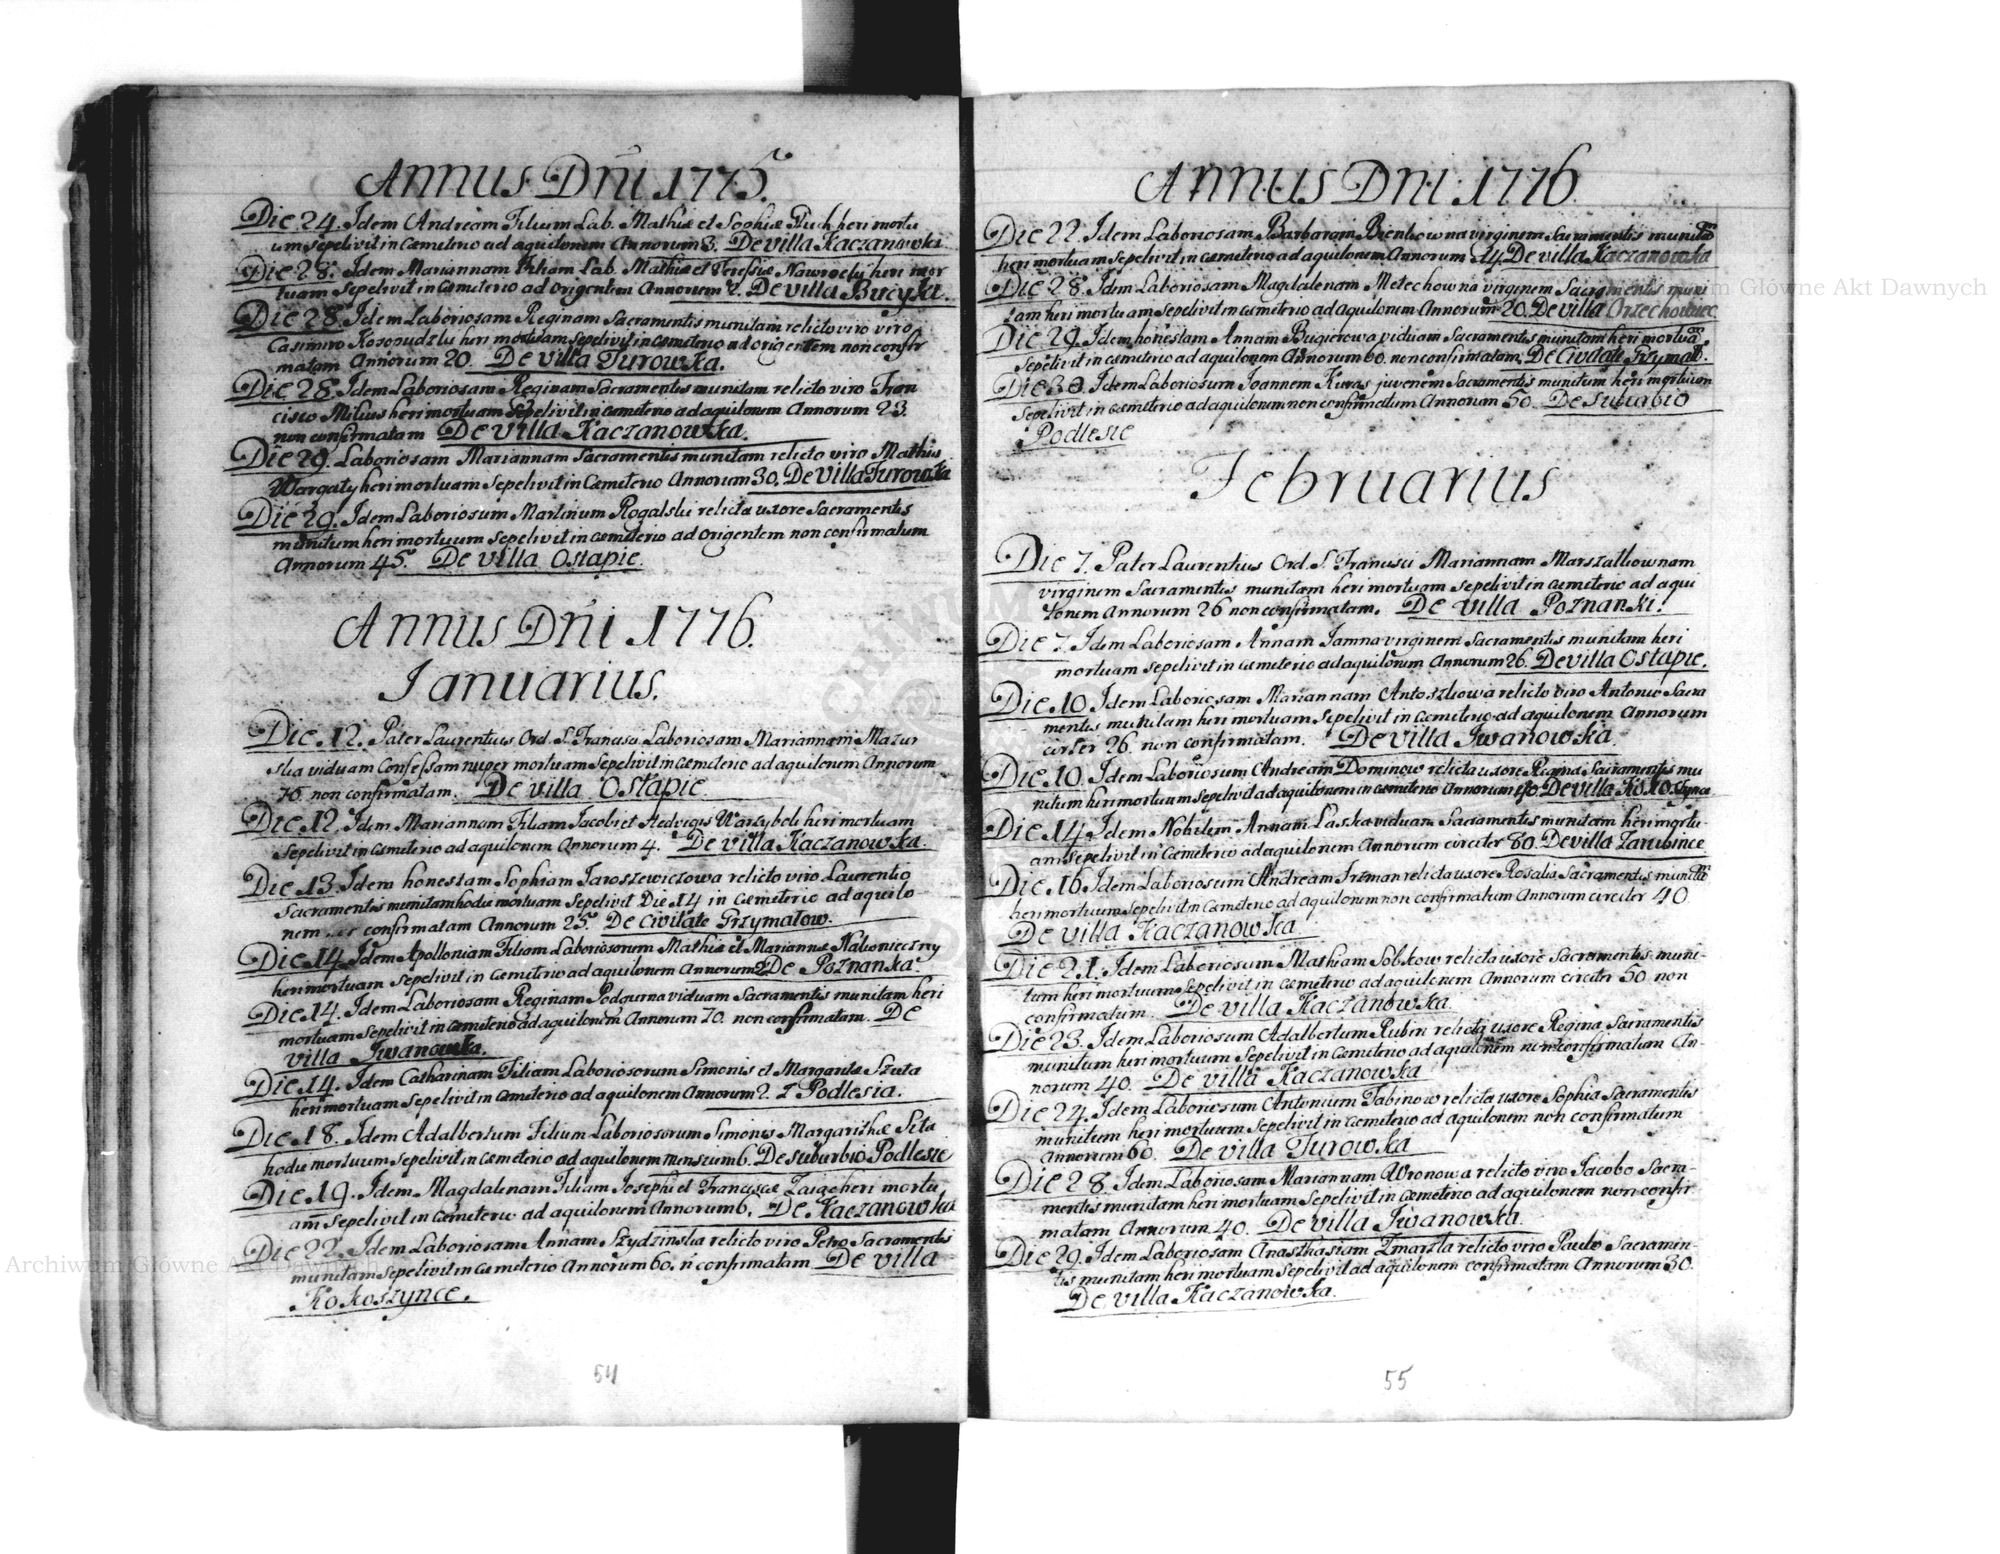 Annus Dñi 1775.
Die 24. Idem Andream Filium Lab. Mathiæ et Sophiæ heri mortu
um sepelivit in cæmeterio ad aquilonem Annorum 3. De villa Kaczanowki
Die 28. Idem Mariannam Filiam Lab. Mathiæ et Teressiæ heri mor
tuam Sepelivit in Cæmeterio ad Origentem Annorum 2. De villa Bucyka.
Die 28. Idem Laboriosam Reginam Sacramentis munitam relicto viro viro
Casimiro heri mortuam sepelivit in cæmeterio ad origentem non confir
matam Annorum 20. De villa Turowka.
Die 28. Idem Laboriosam Reginam Sacramentis munitam relicto viro Fran
cisco Milus heri mortuam Sepelivit in cæmeterio ad aquilonem Annorum 23.
non confirmatam De villa Kaczanowka.
Die 29. Laboriosam Mariannam Sacramentis munitam relicto viro Mathia
Wargaty heri mortuam Sepelivit in Cæmeterio Annorum 30. De villa Turowka
Die 29. Idem Laboriosum Martinum Rogalski relicta uxore Sacramentis
munitum heri mortuum Sepelivit in cæmeterio ad Origentem non confirmatum
Annorum 45. De villa Ostapie.
Annus Dñi 1776.
Ianuarius.
Die 12. Pater Laurentius Ord. S. Francisci Laboriosam Mariannam Mazur
ska viduam Confessam nuper mortuam Sepelivit in Cæmeterio ad aquilonem Annorum
70. non confirmatam. De villa Ostapie.
Die 12. Idem Mariannam Filiam Iacobi et Hedvigis heri mortuam
Sepelivit in Cæmeterio ad aquilonem Annorum 4. De villa Kaczanowka.
Die 13. Idem honestam Sophiam Iaroszewiczowa relicto viro Laurentio
Sacramentis munitam hodie mortuam Sepelivit Die 14 in Cæmeterio ad aquilo-
nem confirmatam Annorum 25. De Civitate Grzymalow.
Die 14. Idem Apolloniam Filiam Laboriosorum Mathiæ et Mariannæ Nakonieczny
heri mortuam sepelivit in Cæmeterio ad aquilonem Annorum 2 De Poznanka.
Die 14. Idem Laboriosam Reginam Podgurna viduam Sacramentis munitam heri
mortuam Sepelivit in cæmeterio ad aquilonem Annorum 70. non confirmatam. De
villa Iwanowka.
Die 14. Idem Catharinam Filiam Laboriosorum Simonis et Margaritæ Szuta
heri mortuam sepelivit in cæmeterio ad aquilonem Annorum 2. Z Podlesia.
Die 18. Idem Adalbertum Filium Laboriosorum Simonis Margarithæ Sita
hodie mortuum sepelivit in cæmeterio ad aquilonem mensium 6. De suburbio Podlesie
Die 19. Idem Magdalenam Filiam Iosephi et Franciscæ heri mortu
am̃ sepelivit in Cæmeterio ad aquilonem Annorum 6. De Kaczanowka
Die 22. Idem Laboriosam Annam Szydzinska relicto viro Petro Sacramentis
munitam sepelivit in Cæmeterio Annorum 60. ñ confirmatam De villa
Kokoszynce.
54
Annus Dni 1776.
Die 22. Idem Laboriosam Barbaram Bienkowna virginem Sacramentis munitã
heri mortuam sepelivit in cæmeterio ad aquilonem Annorum 14. De villa Kaczanowka
Die 28. Idem Laboriosam Magdalenam Metechowna virginem Sacramentis muni
tam heri mortuam sepelivit in cæmeterio ad aquilonem Annorum 20. De villa Orzechowiec
Die 29. Idem honestam Annam Bugierowa viduam Sacramentis munitam heri mortuã.
Sepelivit in cæmeterio ad aquilonem Annorum 60. non confirmatam. De Civitate Grzymalo.
Die 30. Idem Laboriosum Ioannem Kuras juvenem Sacramentis munitum heri mortuum
Sepelivit in cæmeterio ad aquilonem non confirmatum Annorum 50. De suburbio
Podlesie
Februarius
Die 7. Pater Laurentius Ord. S. Francisci Mariannam Marszalkownam
virginem Sacramentis munitam heri mortuam sepelivit in cæmeterio ad aqui
lonem Annorum 26 non confirmatam. De villa Poznanki.
Die 7. Idem Laboriosam Annam Iamna virginem Sacramentis munitam heri
mortuam sepelivit in cæmeterio ad aquilonem Annorum 26. De villa Ostapie.
Die 10. Idem Laboriosam Mariannam Antoszkowa relicto viro Antonio Sacra
mentis munitam heri mortuam sepelivit in Cæmeterio ad aquilonem Annorum
cirter 26. non confirmatam. De villa Iwanowka.
Die 10. Idem Laboriosum Andream Dominow relicta uxore Regina Sacramentis mu
nitum heri mortuum sepelivit ad aquilonem in cæmeterio Annorum De villa Kokoszynce
Die 14. Idem Nobilem Annam Laska viduam Sacramentis munitam heri mortu-
am sepelivit in Cæmeterio ad aquilonem Annorum circiter 80. De villa Zarubince
Die 16. Idem Laboriosum Andream relicta uxore Rosalia Sacramentis munitũ
heri mortuum sepelivit in Cæmeterio ad aquilonem non confirmatum Annorum circiter 40.
De villa Kaczanowka
Die 21. Idem Laboriosum Mathiam Sobkow relicta uxore Sacramentis muni-
tum heri mortuum sepelivit in Cæmeterio ad aquilonem Annorum circiter 50 non
confirmatum. De villa Kaczanowka.
Die 23. Idem Laboriosum Adalbertum Rubin relicta uxore Regina Sacramentis
munitum heri mortuum sepelivit in Cæmeterio ad aquilonem non confirmatum An-
norum 40. De villa Kaczanowka
Die 24. Idem Laboriosum Antonium Fabinow relicta uxore Sophia Sacramentis
munitum heri mortuum Sepelivit in Cæmeterio ad aquilonem non confirmatum
Annorum 60. De villa Turowka
Die 28. Idem Laboriosam Mariannam Wronowa relicto viro Iacobo Sacra-
mentis munitam heri mortuam sepelivit in Cæmeterio ad aquilonem non confir
matam Annorum 40. De villa Iwanowka.
Die 29. Idem Laboriosam Anasthasiam Zmarzla relicto viro Paulo Sacramen-
tis munitam heri mortuam sepelivit ad aquilonem confirmatam Annorum 30.
De villa Kaczanowka.
55
Archiwum Główne Akt Dawnych
Archiwum Główne Akt Dawnych